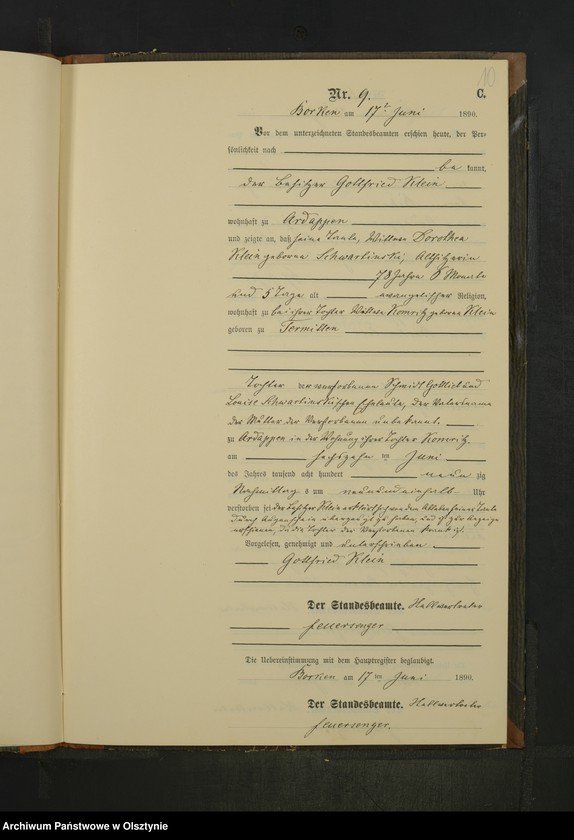 10
Nr. 9. C.
Borken am 17t Juni 1890.
Vor dem unterzeichneten Standesbeamten erschien heute, der Per-
sönlichkeit nach
be kannt,
der Besitzer Gottfried Klein
wohnhaft zu Ardappen
und zeigte an, daß seine Tante, Wittwe Dorothea
Klein geborene Schwartinski, Altsitzerin
78 Jahre 6 Monate
und 5 Tage alt evangelischer Religion,
wohnhaft zu bei ihrer Tochter Wittwe Komritz geboren Klein
geboren zu Termitten
Tochter der verstorbenen Schmidt Gottlieb und
Louise Schwartinskischen Eheleute, der Vatersname
der Mutter der Verstorbenen unbekannt.
zu Ardappen in der Wohnung ihrer Tochter Komritz
am sechszehn ten Juni
des Jahres tausend acht hundert neun zig
Nachmittag s um neunundeinhalb Uhr
verstorben sei der Besitzer Klein erklärt sich von dem Ableben seiner Tante
durch Augenschein überzeugt zu haben, und ist zur Anzeige
erschienen, da die Tochter der Verstorbenen krank ist.
Vorgelesen, genehmigt und unterschrieben
Gottfried Klein
Der Standesbeamte. Stellvertreter
Feuersenger
Die Uebereinstimmung mit dem Hauptregister beglaubigt.
Borken am 17 ten Juni 1890.
Der Standesbeamte. Stellvertreter
Feuersenger.
Archiwum Państwowe w Olsztynie